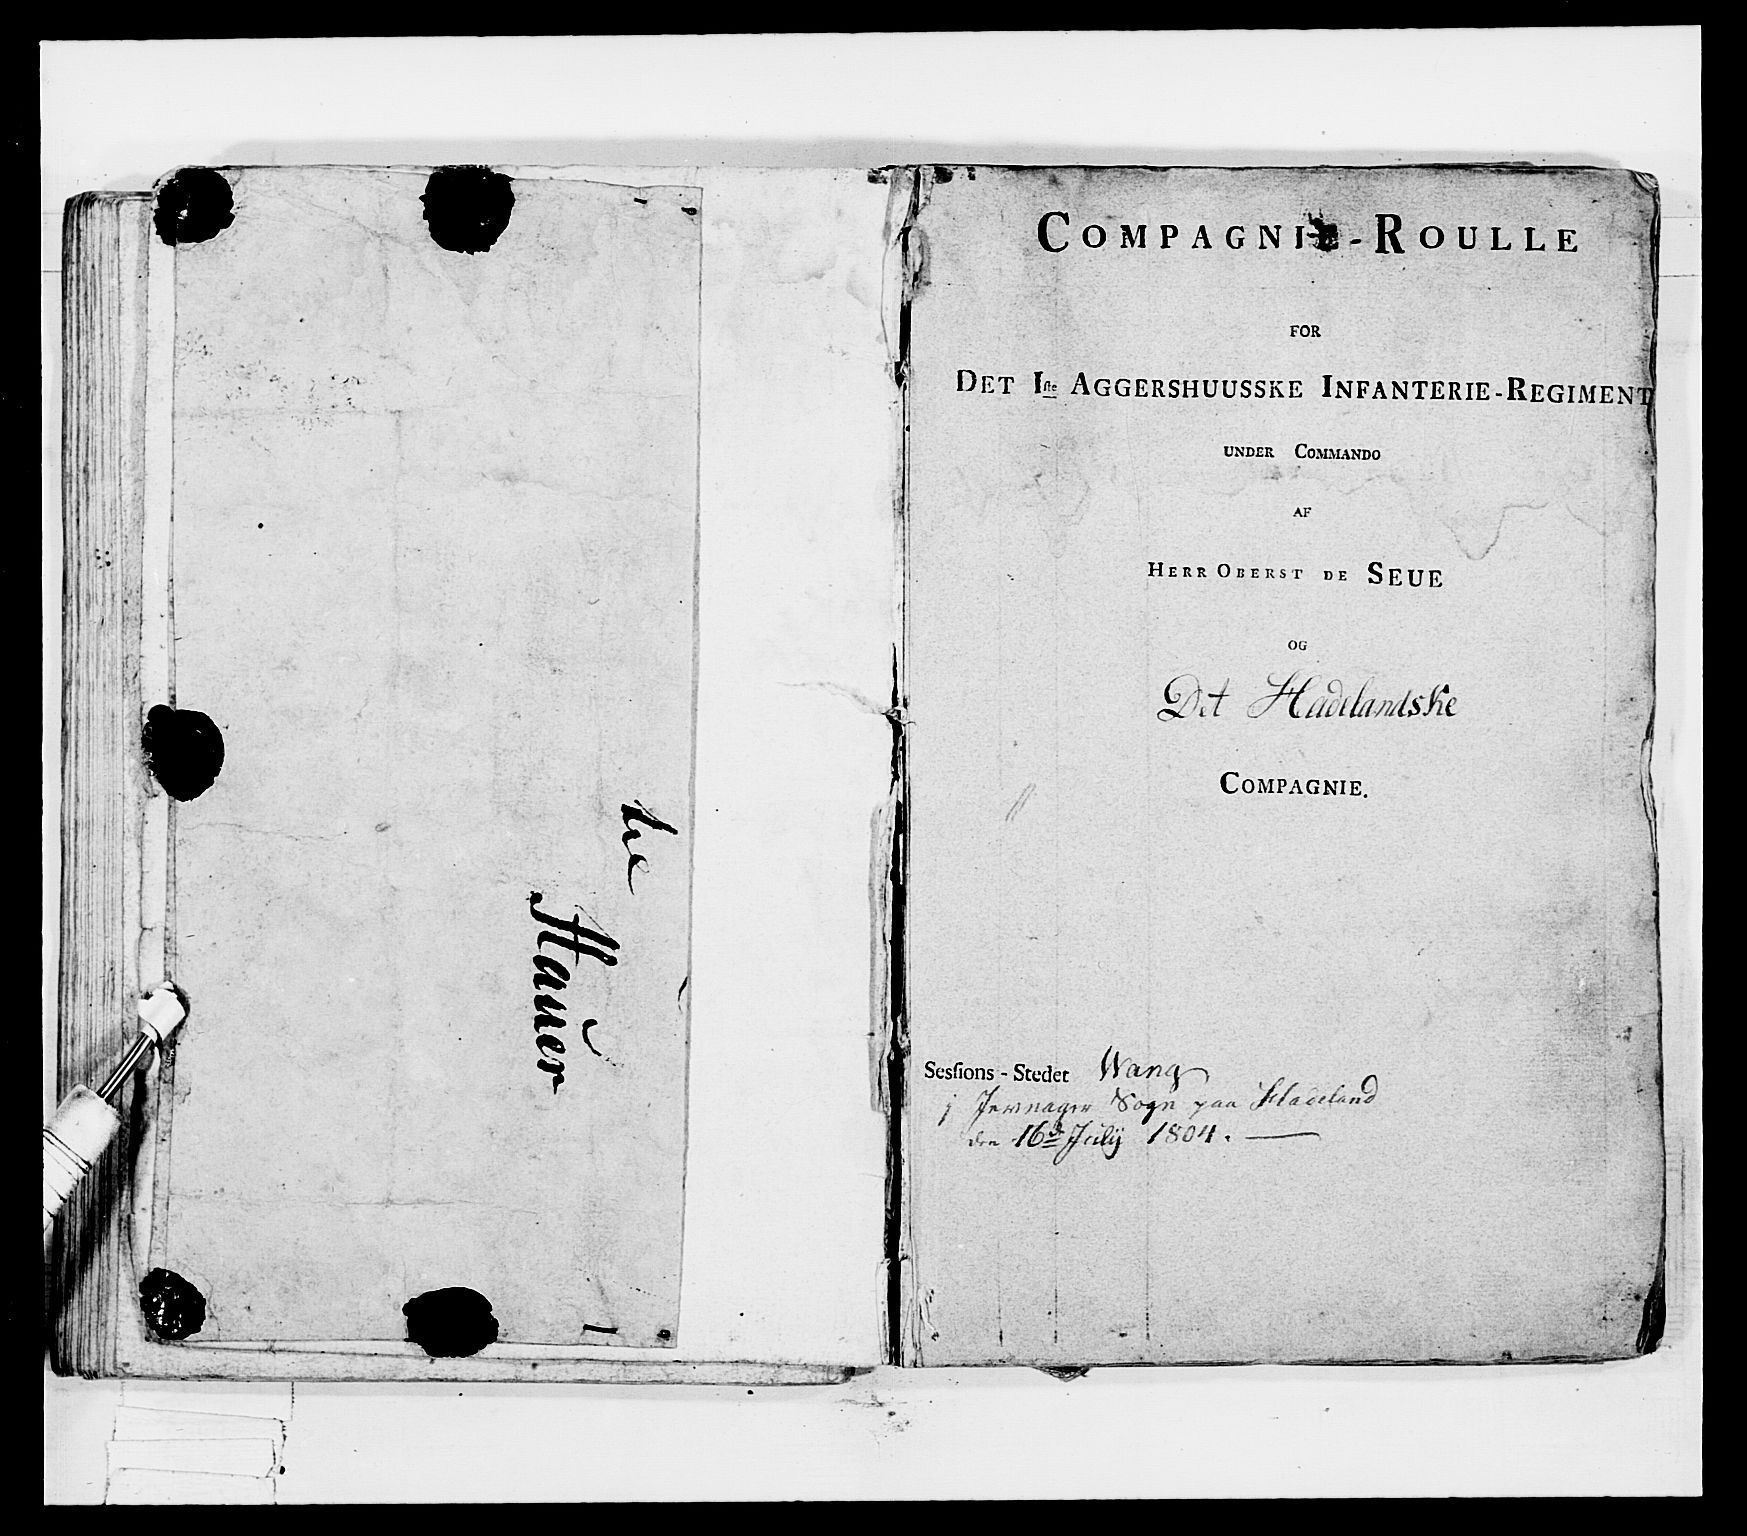 de
Hauer
COMPAGNIE-ROULLE
FOR
DET Iste AGGERSHUUSSKE INFANTERIE-REGIMENT
UNDER COMMANDO
AF
HERR OBERST DE SEUE
OG
Det Hadelandske
COMPAGNIE.
Sessions-Stedet Wang
i Jevnager Sogn paa Hadeland
den 16de Julÿ 1804.